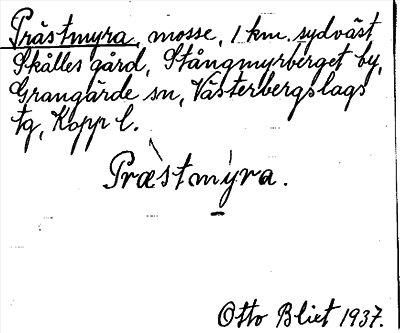 Prästmyra, mosse, 1 km. sydväst
Skålles gård, Stångmyrberget by,
Grangärde sn, Västerbergslags
tg, Kopp l.
Præ̀stmýra.
Otto Blixt 1937.